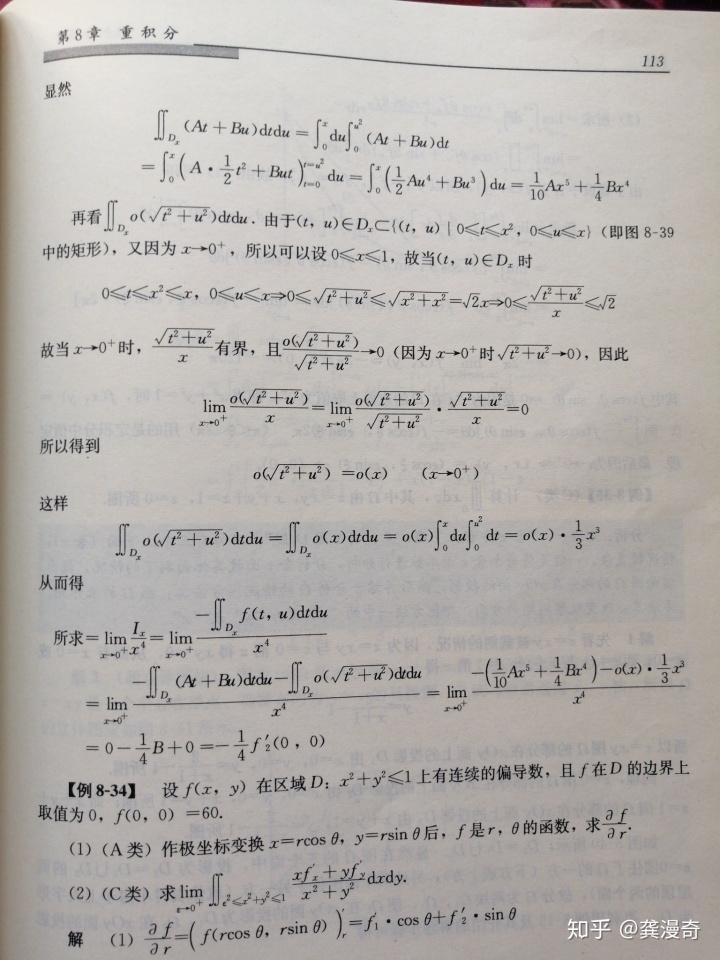 第8章 重积分
113
显然
∬_{D_x} (At + Bu)dtdu = ∫_0^x du∫_0^{u²} (At + Bu)dt
= ∫_0^x (A·1/2 t² + But)|_{t=0}^{t=u²} du = ∫_0^x (1/2 Au⁴ + Bu³) du = 1/10 Ax⁵ + 1/4 Bx⁴
再看∬_{D_x} o(√(t²+u²))dtdu. 由于(t, u)∈D_x⊂{(t, u) | 0≤t≤x², 0≤u≤x} (即图 8-39
中的矩形), 又因为 x→0⁺, 所以可以设 0≤x≤1, 故当(t, u)∈D_x 时
0≤t≤x²≤x, 0≤u≤x⇒0≤√(t²+u²)≤√(x²+x²)=√2x⇒0≤√(t²+u²)/x≤√2
故当 x→0⁺时, √(t²+u²)/x 有界, 且 o(√(t²+u²))/√(t²+u²)→0 (因为 x→0⁺时√(t²+u²)→0), 因此
lim_{x→0⁺} o(√(t²+u²))/x = lim_{x→0⁺} o(√(t²+u²))/√(t²+u²) · √(t²+u²)/x = 0
所以得到
o(√(t²+u²)) = o(x) (x→0⁺)
这样
∬_{D_x} o(√(t²+u²))dtdu = ∬_{D_x} o(x)dtdu = o(x)∫_0^x du∫_0^{u²} dt = o(x)·1/3 x³
从而得
所求 = lim_{x→0⁺} I_x/x⁴ = lim_{x→0⁺} (-∬_{D_x} f(t, u)dtdu)/x⁴
= lim_{x→0⁺} (-∬_{D_x} (At + Bu)dtdu - ∬_{D_x} o(√(t²+u²))dtdu)/x⁴ = lim_{x→0⁺} (-(1/10 Ax⁵ + 1/4 Bx⁴) - o(x)·1/3 x³)/x⁴
= 0 - 1/4 B + 0 = -1/4 f′₂(0, 0)
【例 8-34】 设 f(x, y) 在区域 D: x²+y²≤1 上有连续的偏导数, 且 f 在 D 的边界上
取值为 0, f(0, 0) =60.
(1) (A 类) 作极坐标变换 x=rcos θ, y=rsin θ 后, f 是 r, θ 的函数, 求 ∂f/∂r.
(2) (C 类) 求 lim_{ε→0⁺} ∬_{ε²≤x²+y²≤1} (xf′_x + yf′_y)/(x²+y²) dxdy.
解 (1) ∂f/∂r = (f(rcos θ, rsin θ))′_r = f′₁·cos θ + f′₂·sin θ
知乎 @龚漫奇